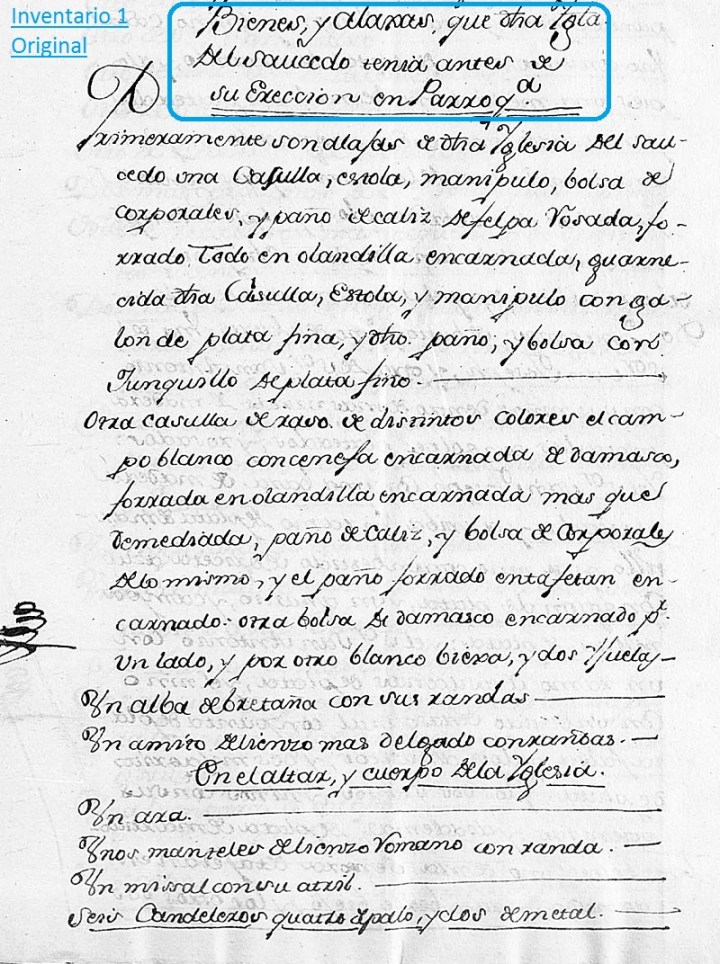 Inventario 1
Original
Bienes, y alaxas, que dha Yglã.
del saucedo tenia antes de
su Ereccion en Parroqª
Primeramente son alajas de dha Yglesia del sau-
cedo una Casulla, estola, manipulo, bolsa de
corporales, y paño de caliz de felpa Rosada, fo-
rrado todo en olandilla encarnada, guarne-
cida dha Casulla, Estola, y manipulo con ga-
lon de plata fina, y dho. paño, y bolsa con
Junquillo de plata fino.
Otra casulla de raso de distintos colores el cam-
po blanco con cenefa encarnada de damasco,
forrada en olandilla encarnada mas que
demediada, paño de caliz, y bolsa de Corporales
de lo mismo, y el paño forrado en tafetan en-
carnado: otra bolsa de damasco encarnado pʳ.
un lado, y por otro blanco biexa, y dos Yjuelas
Un alba de bretaña con sus randas
Un amito de lienzo mas delgado con randas.
En el altar, y cuerpo de la Yglesia.
Un ara.
Unos manteles de lienzo Romano con randa.
Un missal con su atril.
Seis Candeleros quatro de palo, y dos de metal.